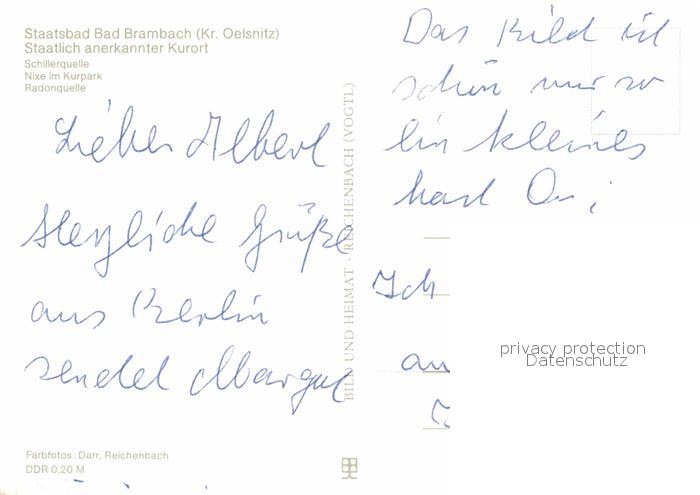 Staatsbad Bad Brambach (Kr. Oelsnitz)
Staatlich anerkannter Kurort
Schillerquelle
Nixe im Kurpark
Radonquelle
Lieber Albert
Herzliche Grüße
aus Berlin
sendet Margot
Das Bild ist
schön nur so
ein kleines
Ich
an
BILD UND HEIMAT · REICHENBACH (VOGTL)
privacy protection
Datenschutz
Farbfotos: Darr, Reichenbach
DDR 0,20 M